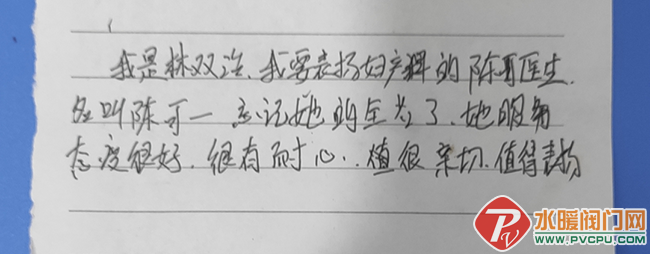 我是林双治.我要表扬妇产科的陈可医生.
名叫陈可一 忘记她的全名了.她服务
态度很好.很有耐心..值很亲切.值得表扬
水暖阀门网
WWW.PVCPU.COM